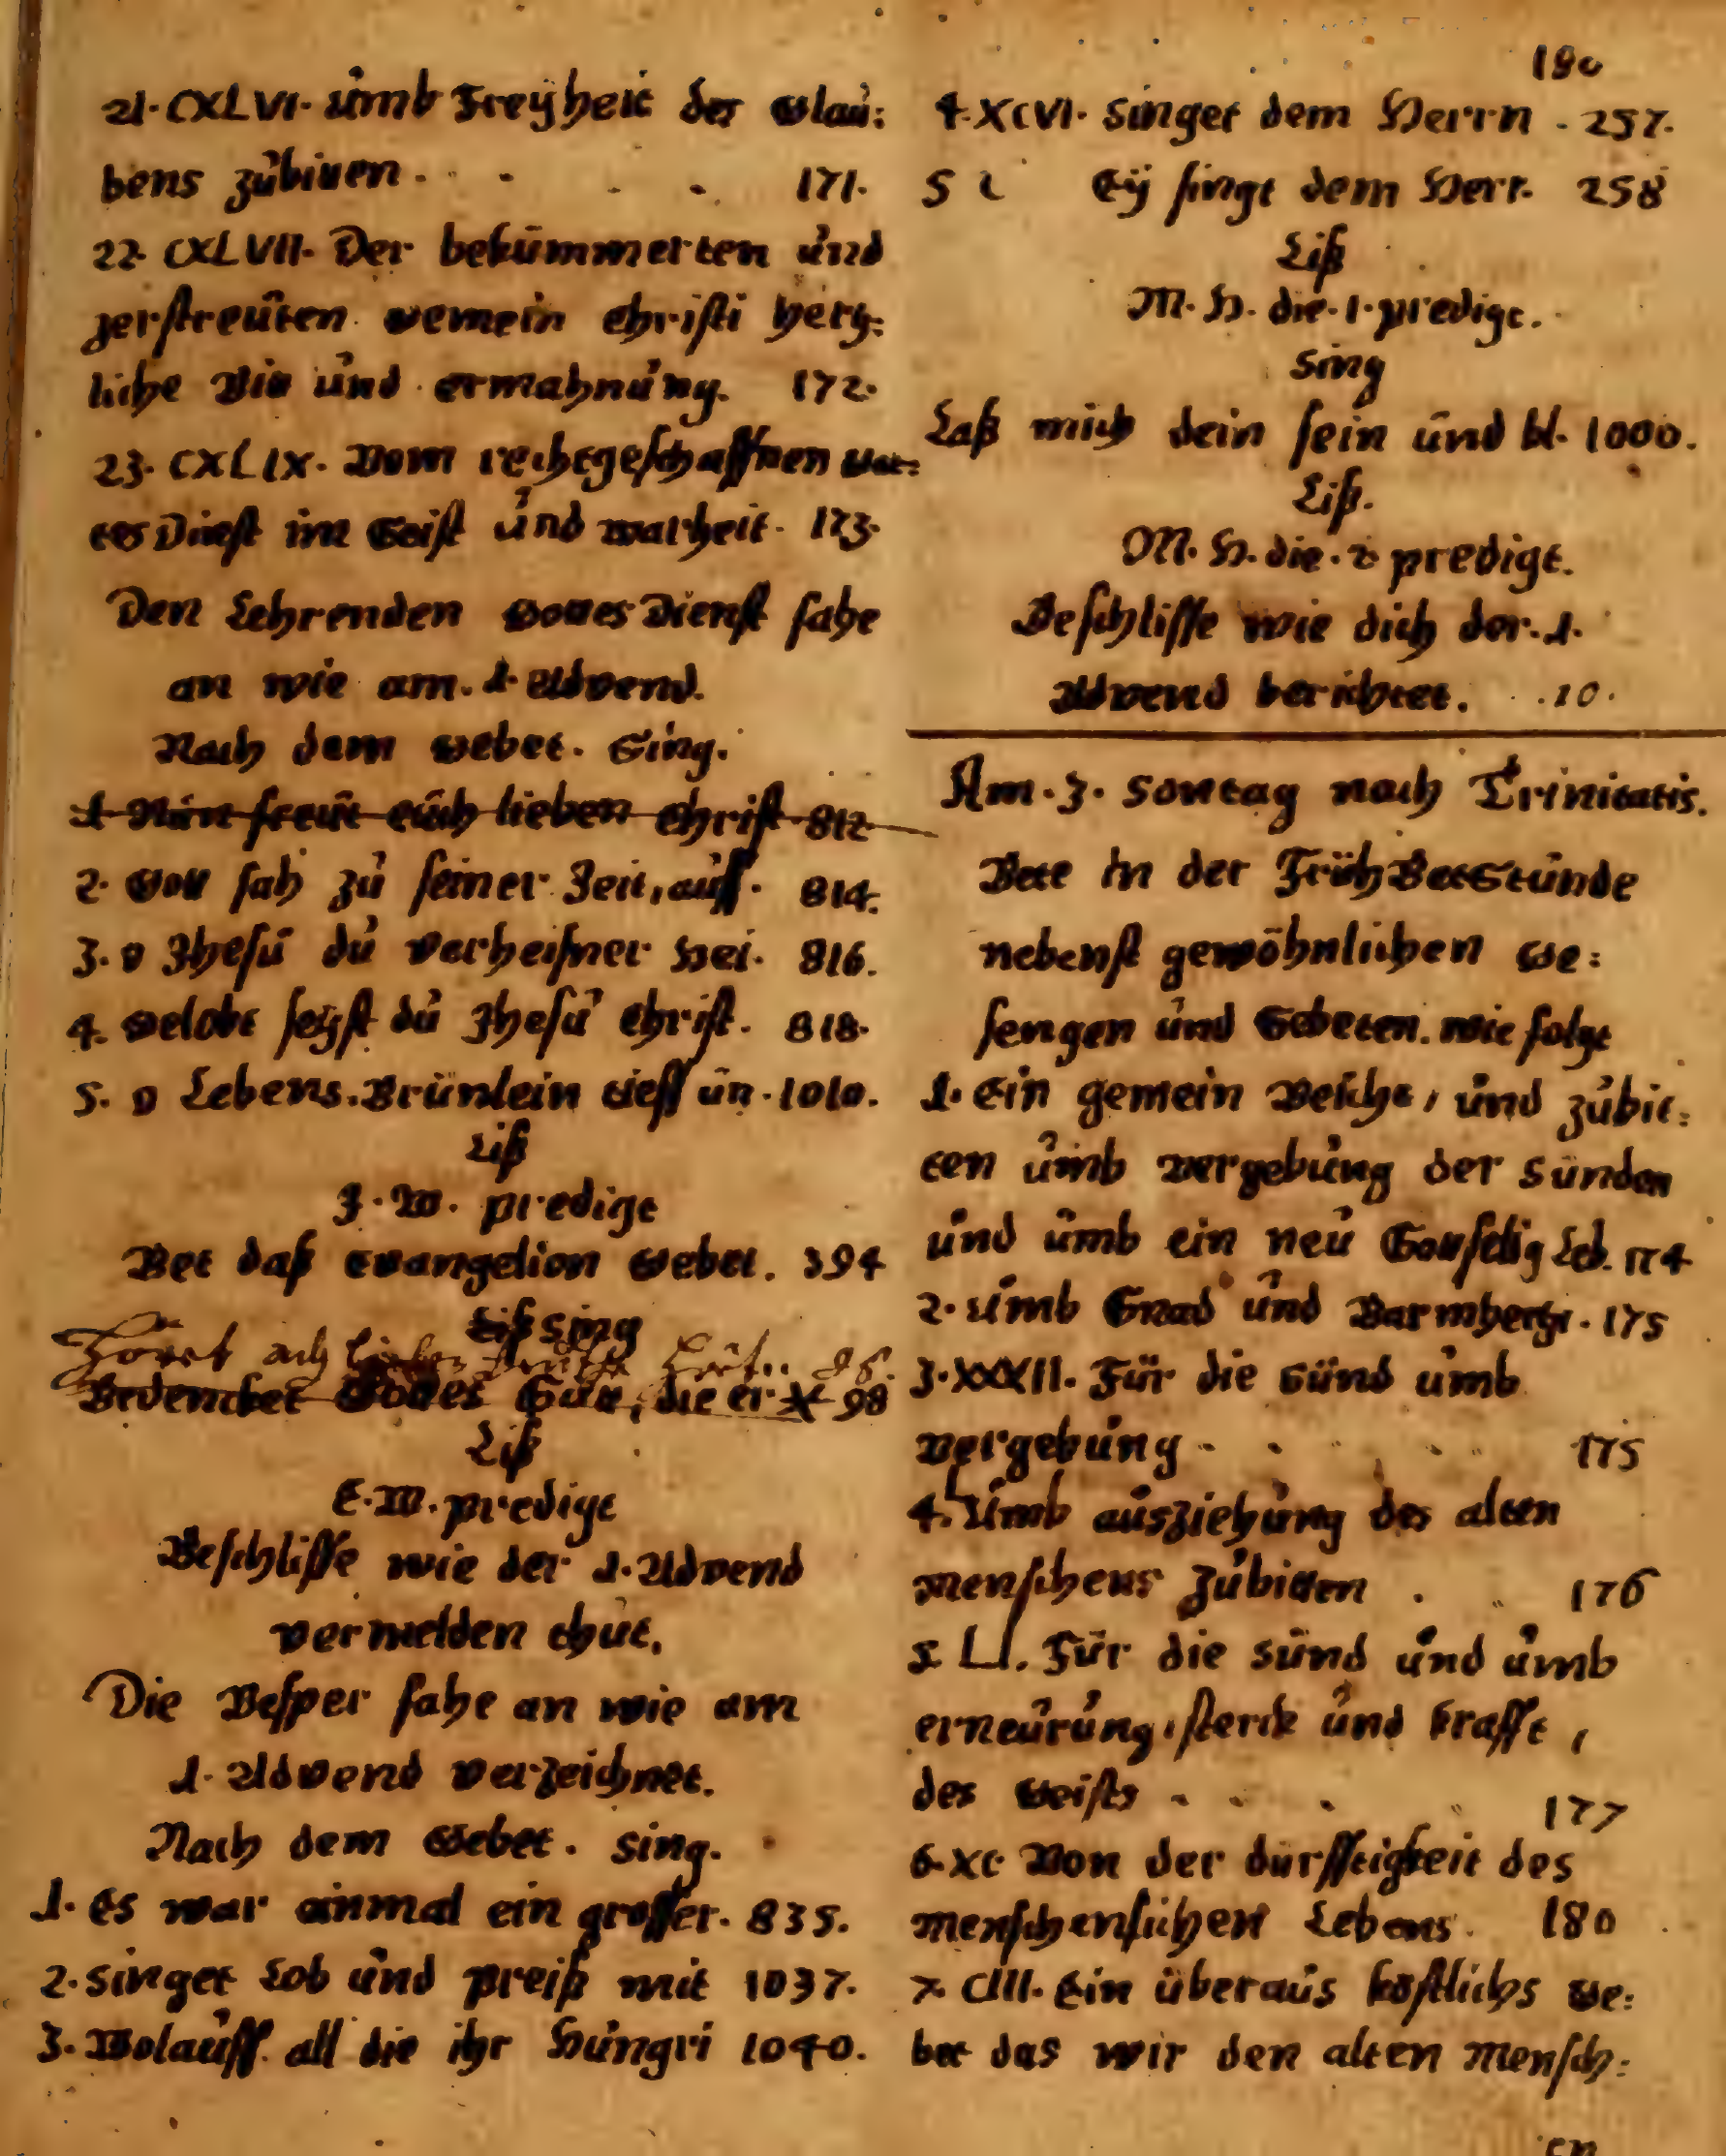 21. CXLVI. umb Freyheit des Glau:
bens zubitten. 171.
22. CXLVII. Der bekümmerten und
zerstreuten gemein Christi hertz:
liche Bitt und ermahnung. 172.
23. CXLIX. Vom rechtgeschaffnen Got:
tes Dinst im Geist und warheit. 173.
Den Lehrenden Gottes Dienst fahe
an wie am. 1. Advend.
Nach dem Gebet. Sing.
1. Nun freut euch lieben Christ. 812
2. Gott sah zu seiner Zeit, auff. 814.
3. O Jhesu du Verheisner Hei. 816.
4. Gelobt seyst du Jhesu Christ. 818.
5. O Lebens. Brünlein tieff un. 1010.
Liß
J. W. predigt
Bet daß Evangelion Gebet. 394
Liß sing
Höret auch
Bedencket Gottes Gütt, die er 98
Liß
E. W. predigt
Beschlisse wie der 1. Advend
vermelden thut.
Die Vesper fahe an wie am
1. Advend verzeichnet.
Nach dem Gebet. sing.
1. Es war einmal ein grosser. 835.
2. singet Lob und preiß mit 1037.
3. Wolauff all die ihr Hungri 1040.
180
4. XCVI. Singet dem Herrn. 257.
5 C Ey singt dem Herr. 258
Liß
M. H. die. 1. predigt.
sing
Laß mich dein sein und bl. 1000.
Liß.
M. H. die. 2 predigt.
Beschlisse wie dich der. 1.
Advend berichtet. 10.
Am. 3. Sontag nach Trinitatis.
Bete in der FrühBetStunde
nebenst gewöhnlichen Ge:
sengen und Gebeten. wie folgt
1. Ein gemein Beicht, und zubit:
ten umb vergebung der Sünden
und umb ein neu Gottselig Leb. 174
2. Umb Gnad und Barmhertzi. 175
3. XXXII. Für die Sünd umb
vergebung. 175
4. Umb ausziehung des alten
menschens zubitten. 176
5. LI. Für die sünd und umb
erneurung, sterck und krafft,
des Geists 177
6. XC Von der dürfftigkeit des
menschenlichen Lebens. 180
7. CIII. Ein überaus köstlichs Ge:
bet das wir den alten mensch:
en